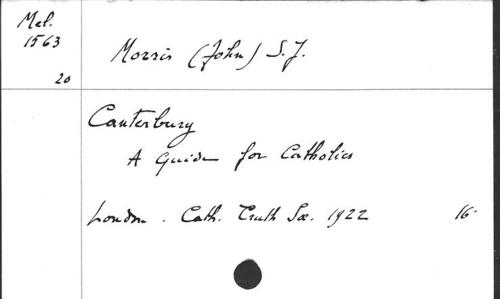 Mel.
1563
20
Morris (John) S.J.
Canterbury
A Guide for Catholics
London. Cath. Truth Soc. 1922 16-